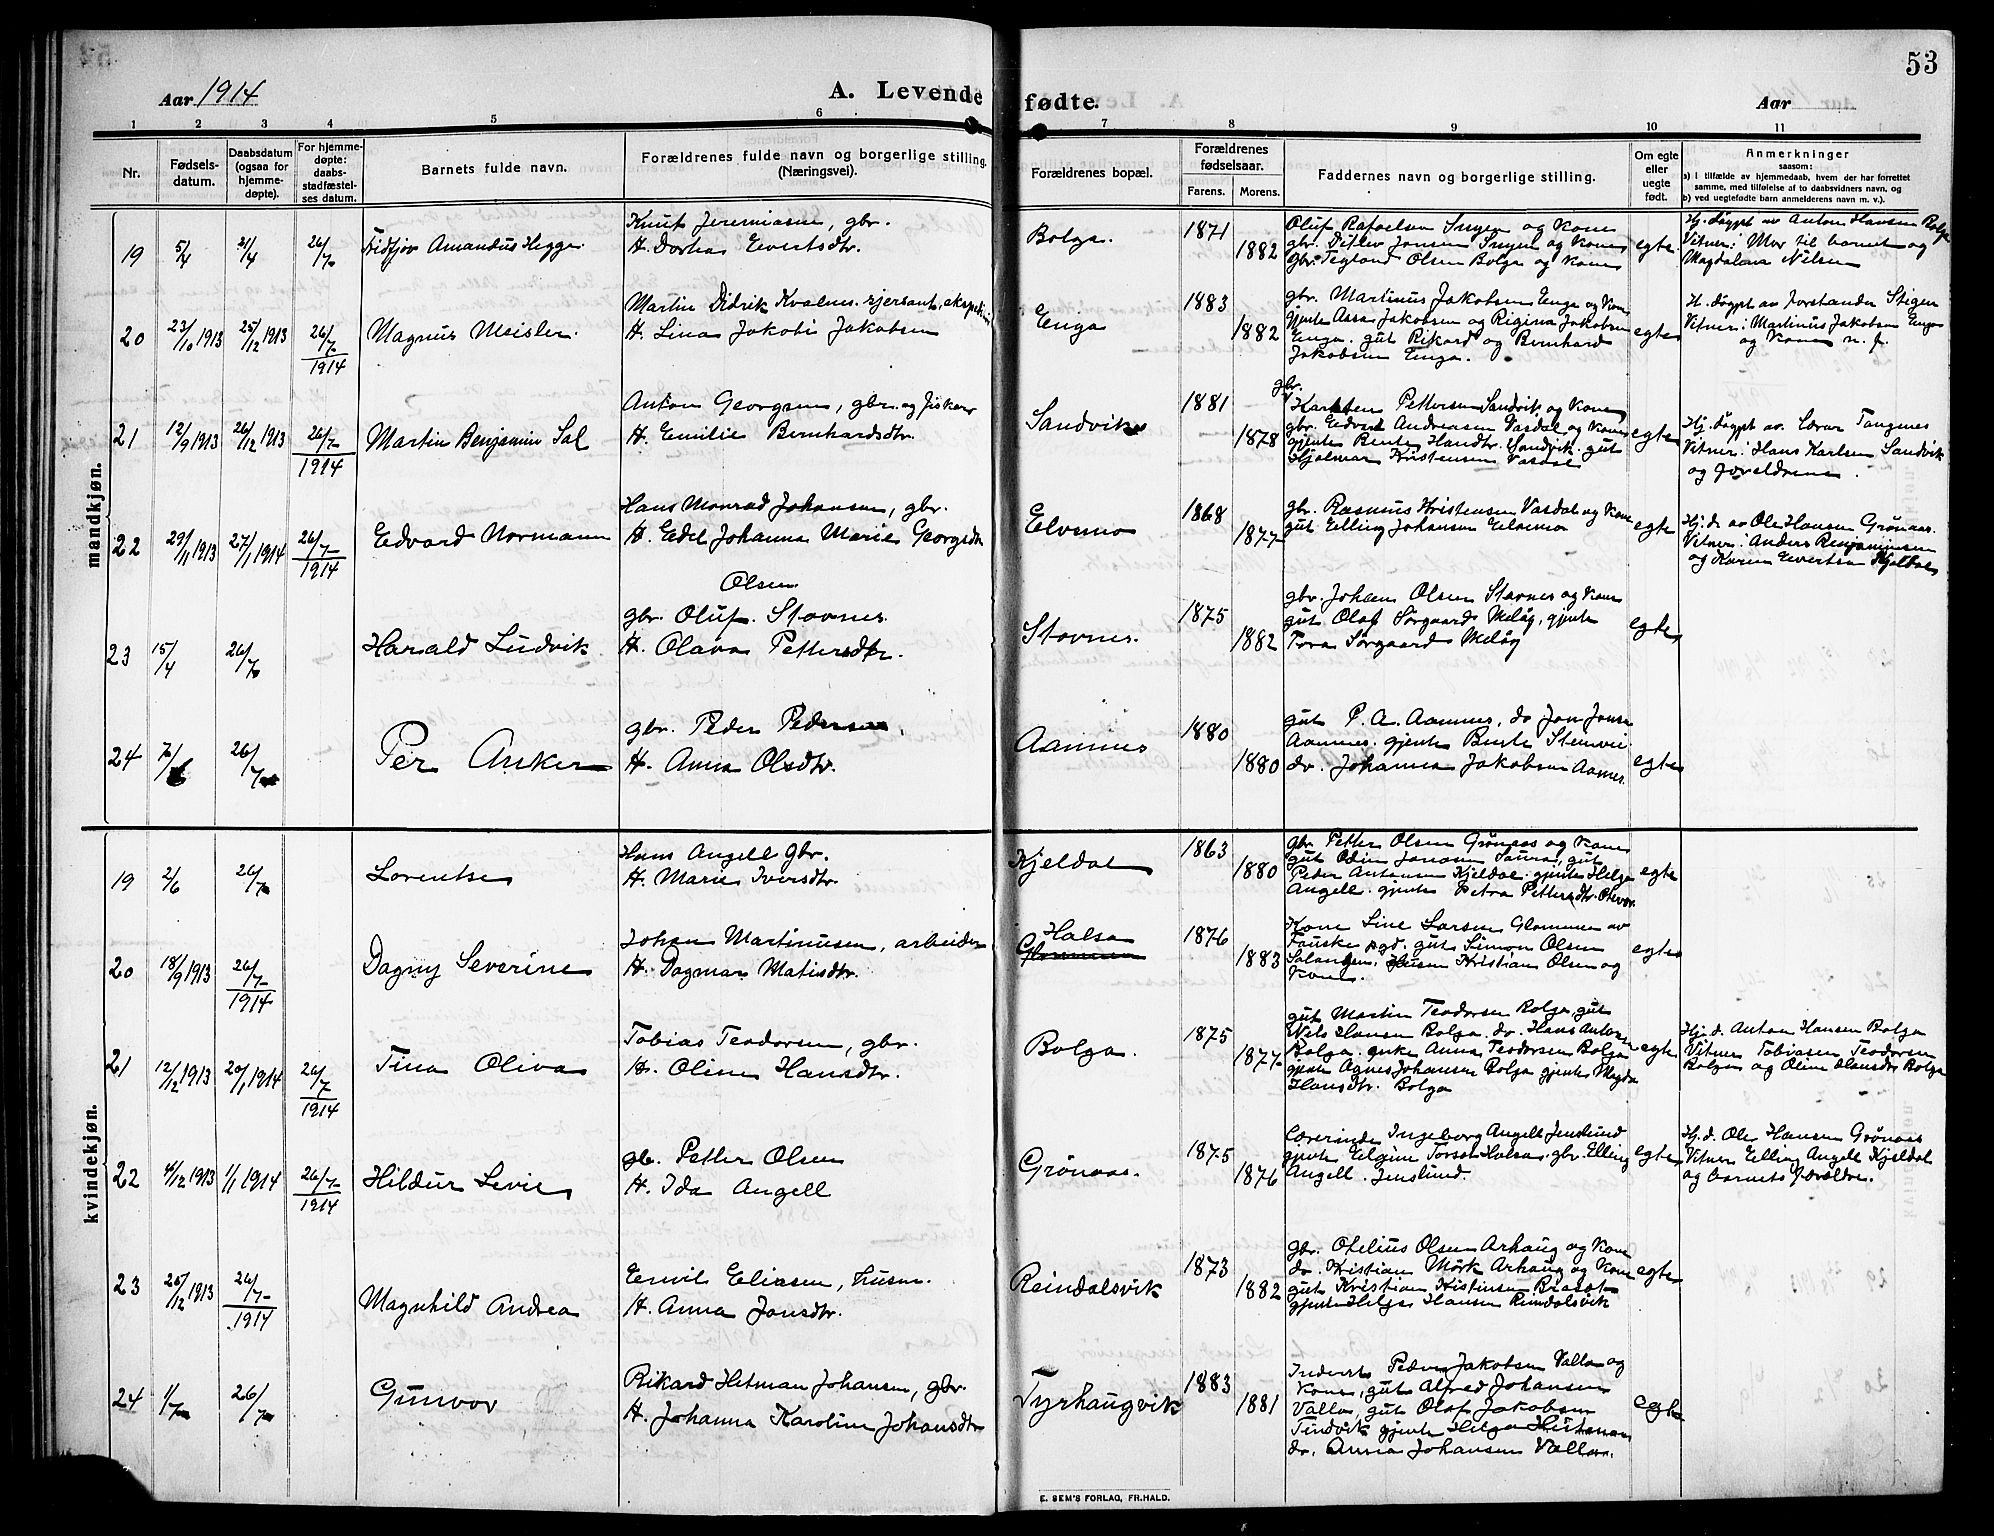 53
Aar 1914
A. Levende fødte.
Aar
1 2 3 4 5 6 7 8 9 10 11
Nr.
Fødsels-
datum.
Daabsdatum
(ogsaa for
hjemme-
døpte).
For hjemme-
døpte:
daabs-
stadfæstel-
ses datum.
Barnets fulde navn.
Forældrenes fulde navn og borgerlige stilling.
(Næringsvei).
Forældrenes bopæl.
Forældrenes
fødselsaar.
Farens. Morens.
Faddernes navn og borgerlige stilling.
Om egte
eller
uegte
født.
Anmerkninger
saasom:
a) i tilfælde av hjemmedaab, hvem der har forrettet
samme, med tilføielse af to daabsvidners navn, og
b) ved uegtefødte barn anmelderens navn m. v.).
mandkjøn.
19 5/4 21/4 26/7 Fidtjov Amandus Hegge
Knut Jeremiasen, gbr.
H. Dorthea Evertsdtr.
Bolga. 1871 1882
Oluf Rafaelsen og Kone
gbr. Ditlev Jensen og Kone
gbr. Tegland Olsen Bolga og Kone
egte
Hj. døypt av Anton Hansen Bolga
Vitner: Mor til barnet og
Magdalena Nilsen
20 23/10 1913 25/12 1913 26/7 1914 Magnus Meisler.
Martin Didrik Kvalnes
H. Lina Jakobi Jakobsen
Enga 1883 1882
gbr. Martinus Jakobsen Enga og Kone
gjente Assa Jakobsen og Regina Jakobsen
Enga. gut Rikard og Bernhard
Jakobsen Enga.
egte
H. døypt av Forstander Stigen
Vitner: Martinus Jakobsen Enga
og Kone n. f.
21 12/9 1913 26/12 1913 26/7 1914 Martin Benjamin Sal
Anton Georgsen, gbr. og fisker
H. Emilie Bernhardsdtr.
Sandvik 1881 1878
gbr.
Karsten Pettersen Sandvik og Kone
gbr. Edvard Andreasen Vasdal og Kone
gjente Bente Handtr. Sandvik. gut
Hjalmar Kristensen Vasdal
egte
Hj. døypt av. Lærar Tangnes
Vitner: Hans Karlsen Sandvik
og foreldrene.
22 29/11 1913 27/1 1914 26/7 1914 Edvard Normann
Hans Monrad Johansen, gbr.
H. Edel Johanna Marie Georgsdtr
Elvemo 1868 1877
gbr. Rasmus Kristensen Vasdal og Kone
gut Elling Johansen Elvemo
egte
Hj. d. av Ole Hansen Grønaas.
Vitner: Anders Benjaminsen
og Karen Evertsen Kjeldal
23 15/4 26/7 Harald Ludvik
Olsen
gbr. Oluf. Stavnes.
H. Olava Pettersdtr.
Stavnes. 1875 1882
gbr. Johan Olsen Stavnes og Kone
gut Olaf Sørgaard Meløy, gjente
Tora Sørgaard Meløy
egte
24 7/6 26/7 Per Anker
gbr. Peder Pedersen
H. Anna Olsdtr.
Aamnes 1880 1880
gut P. A. Aamnes, do Jon Jonsen
Aamnes. gjente Bente Stenvei.
do. Johanna Jakobsen Aamnes.
egte
kvindekjøn.
19 2/6 26/7 Lorentse
Hans Angell gbr.
H. Marie Iversdtr.
Kjeldal 1863 1880
gbr. Petter Olsen Grønaas og Kone
gut Odin Jonasen Saura, gut
Peder Antonsen Kjeldal. gjente Helga
Angell. gjente Petra Pettersdtr.
egte
20 18/9 1913 26/7 1914 Dagny Severine
Johan Martinusen, arbeider
H. Dagmar Matisdtr.
Halsa
Glommen
1876 1883
Kone Line Larsen Glommen av
Fauske pgd. gut Simon Olsen
Kristian Olsen og
Kone.
egte
21 12/12 1913 20/1 1914 26/7 1914 Tina Oliva
Tobias Teodorsen, gbr.
H. Oline Hansdtr.
Bolga. 1875 1877
gut Martin Teodorsen Bolga, gut
Nils Hansen Bolga. do. Hans Antonsen
Bolga. enke Anna Teodorsen Bolga
gjente Agnes Johansen Bolga gjente Magda
Hansdtr. Bolga
egte
Hj. d. Anton Hansen Bolga
Vitner Tobiasen Teodorsen
Bolga og Oline Hansdtr Bolga
22 4/12 1913 1/1 1914 26/7 1914 Hildur Levie
gb. Petter Olsen
H. Ida Angell
Grønaas. 1875 1876
Lærerinde Ingeborg Angell Jenslund
gjente Elgine Halsa. gbr. Elling
Angell. Jenslund.
egte
Hj. d. Ole Hansen Grønaas
Vitner Elling Angell Kjeldal
og barnets forældre.
23 26/12 1913 26/7 1914 Magnhild Andrea
Emil Eliasen, husm.
H. Anna Jonsdtr.
Reindalsvik 1873 1882
gbr. Otelius Olsen Arhaug og Kone
do. Kristian Mørk Arhaug og Kone
gut Kristian Kristensen
gjente Helga Hansen Reindalsvik
egte
24 1/7 26/7 Gunvor
Rikard Hitman Johansen, gbr.
H. Johanna Karoline Johansdtr
Tyrhaugvik 1883 1881
Inderst Peder Jakobsen Valla og
Kone, gut Alfred Johansen
Valla, gut Olaf Jakobsen
Tindvik gjente Helga Hitman
do. Anna Johansen Valla.
egte
E. SEM'S FORLAG, FR.HALD.